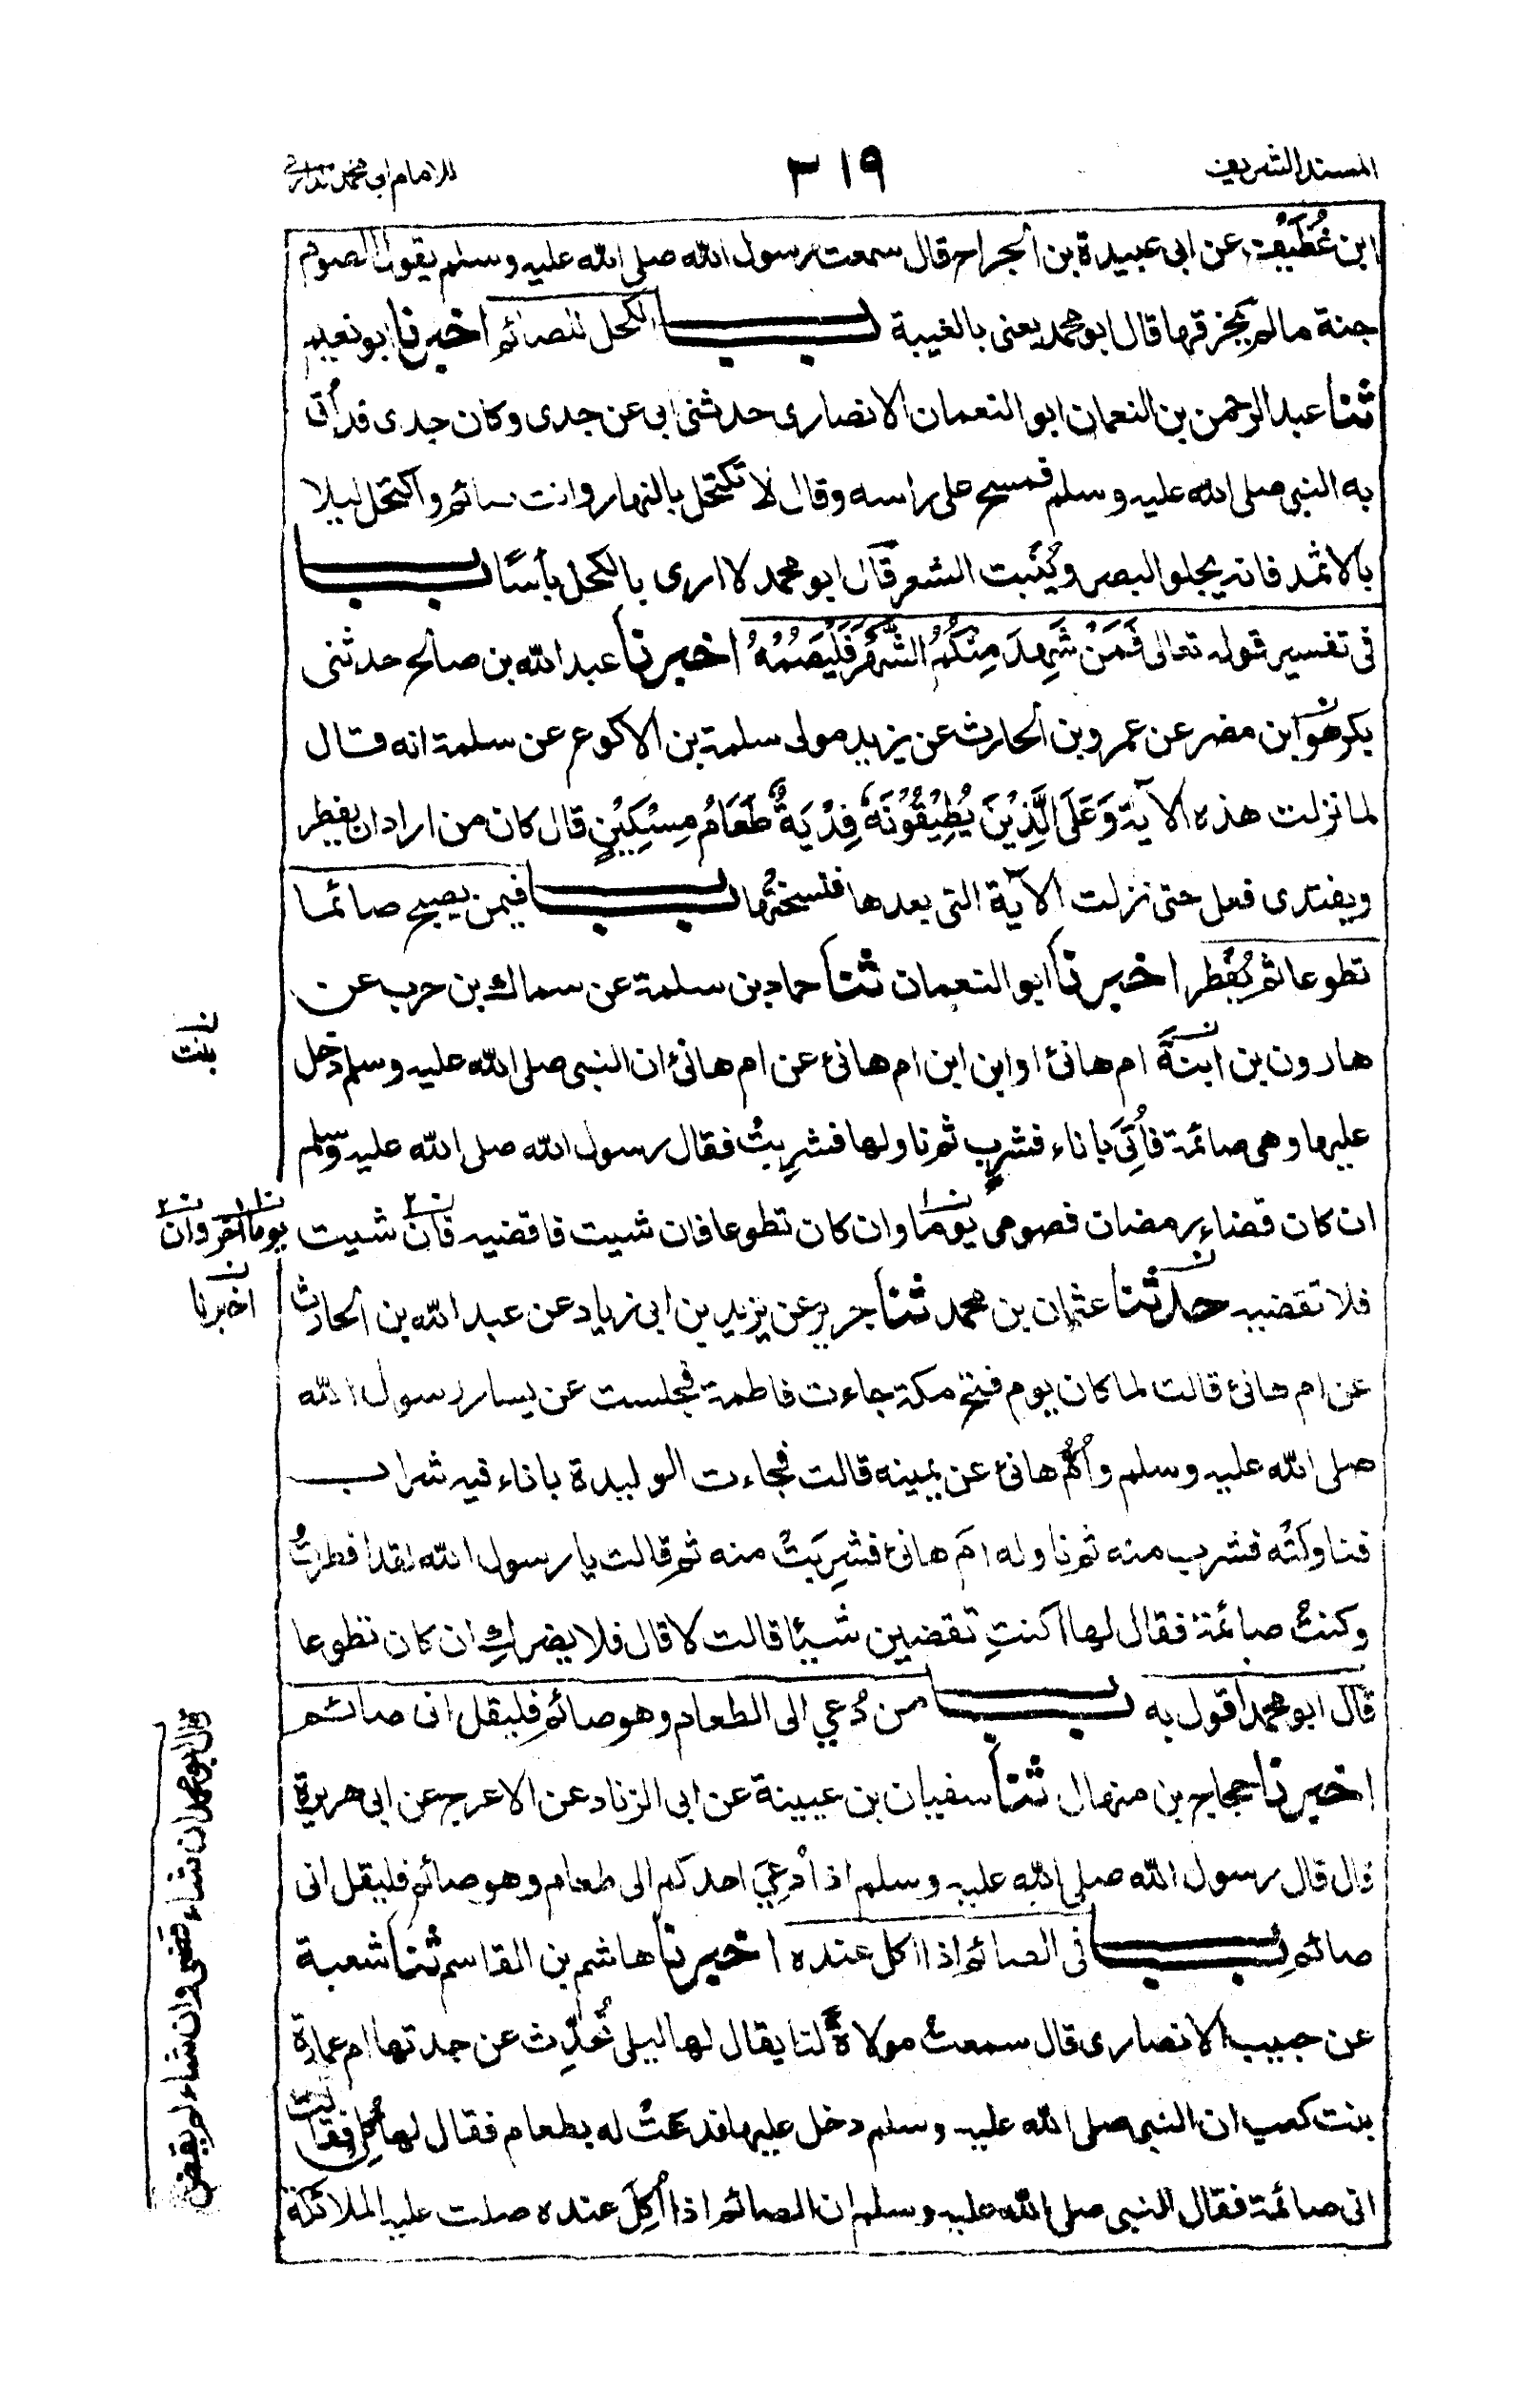 المسند الشريف
٣١٩
للامام ابی محمد
ابن غُطَيْف عن ابی عبيدة بن الجراح قال سمعت رسول الله صلی الله عليه وسلم يقول الصوم
جنة مالم يخرقها قال ابو محمد يعنی بالغيبة بـــاب الكحل للصائم اخبرنا ابو نعيم
ثنا عبد الرحمن بن النعمان ابو النعمان الانصاری حدثنی ابی عن جدی وكان جدی قد أتی
به النبی صلی الله عليه وسلم فمسح علی راسه وقال لا تكتحل بالنهار وانت صائم واكتحل ليلا
بالاثمد فانه يجلو البصر ويُنْبت الشعر قال ابو محمد لا اری بالكحل بأسًا بـــاب
فی تفسير قوله تعالی فَمَنْ شَهِدَ مِنْكُمُ الشَّهْرَ فَلْيَصُمْهُ اخبرنا عبد الله بن صالح حدثنی
بكر هو ابن مضر عن عمرو بن الحارث عن يزيد مولی سلمة بن الاكوع عن سلمة انه قال
لما نزلت هذه الآية وَعَلَی الَّذِيْنَ يُطِيْقُوْنَهٗ فِدْيَةٌ طَعَامُ مِسْكِيْنٍ قال كان من اراد ان يفطر
ويفتدی فعل حتی نزلت الآية التی بعدها فنسختْها بـــاب فيمن يصبح صائما
تطوعا ثم يُفطر اخبرنا ابو النعمان ثنا حماد بن سلمة عن سماك بن حرب عن
هارون بن ابنة ام هانئ او ابن ابن ام هانئ عن ام هانئ ان النبی صلی الله عليه وسلم دخل
ن بنت
عليها وهی صائمة فأُتِیَ باناء فشرب ثم ناولها فشرِبتْ فقال رسول الله صلی الله عليه وسلم
ان كان قضاء رمضان فصومی يوما ن١ وان كان تطوعا فان شيت فاقضيه فان ن٢ شيت
ن١ يوما آخر ن٢ وان
فلا تقضيه حدثنا عثمان بن محمد ثنا جرير عن يزيد بن ابی زياد عن عبد الله بن الحارث
ن اخبرنا
عن ام هانئ قالت لما كان يوم فتح مكة جاءت فاطمة فجلست عن يسار رسول الله
صلی الله عليه وسلم وأُمُّ هانئ عن يمينه قالت فجاءت الوليدة باناء فيه شراب
فناولتْه فشرب منه ثم ناوله امَ هانئ فشرِبَتْ منه ثم قالت يا رسول الله لقد افطرتُ
وكنتُ صائمة فقال لها أكنتِ تقضين شيئا قالت لا قال فلا يضركِ ان كان تطوعا
قال ابو محمد اقول به بـــاب من دُعي الی الطعام وهو صائم فليقل انی صائم
اخبرنا حجاج بن منهال ثنا سفيان بن عيينة عن ابی الزناد عن الاعرج عن ابی هريرة
قال قال رسول الله صلی الله عليه وسلم اذا دُعِیَ احدكم الی طعام وهو صائم فليقل انی
صائم بـــاب فی الصائم اذا اكل عنده اخبرنا هاشم بن القاسم ثنا شعبة
عن حبيب الانصاری قال سمعتُ مولاةً لنا يقال لها ليلی تُحدِّث عن جدتها ام عمارة
بنت كعب ان النبی صلی الله عليه وسلم دخل عليها فدعتْ له بطعام فقال لها كُلی فقالت
انی صائمة فقال النبی صلی الله عليه وسلم ان الصائم اذا أُكِلَ عنده صلت عليه الملائكة
قال ابو محمد ان شاء قضی وان شاء لم يقض